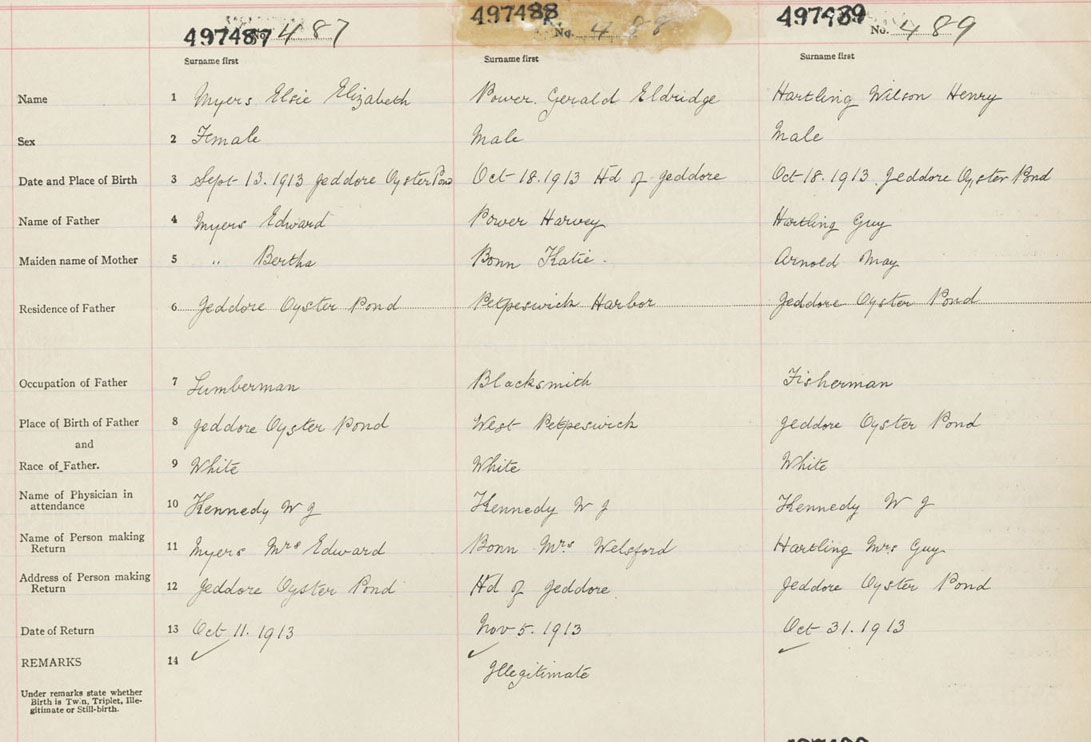 497487 487 497488 No. 488 497489 No. 489
Surname first Surname first Surname first
Name 1 Myers Elsie Elizabeth Power. Gerald Eldridge Hartling Wilson Henry
Sex 2 Female Male Male
Date and Place of Birth 3 Sept 13. 1913 Jeddore Oyster Pond Oct 18. 1913 Hd of Jeddore Oct 18. 1913. Jeddore Oyster Pond
Name of Father 4 Myers Edward Power Harvey Hartling Guy
Maiden name of Mother 5 " Bertha Bonn Katie. Arnold May
Residence of Father 6 Jeddore Oyster Pond Petpeswick Harbor Jeddore Oyster Pond
Occupation of Father 7 Lumberman Blacksmith Fisherman
Place of Birth of Father 8 Jeddore Oyster Pond West Petpeswick Jeddore Oyster Pond
and
Race of Father. 9 White White White
Name of Physician in
attendance 10 Kennedy W J Kennedy W J Kennedy W J
Name of Person making
Return 11 Myers Mrs Edward Bonn Mrs Welsford Hartling Mrs Guy
Address of Person making
Return 12 Jeddore Oyster Pond Hd of Jeddore Jeddore Oyster Pond
Date of Return 13 Oct 11. 1913 Nov 5. 1913 Oct 31. 1913
REMARKS 14 Illegitimate
Under remarks state whether
Birth is Twin, Triplet, Ille-
gitimate or Still-birth.